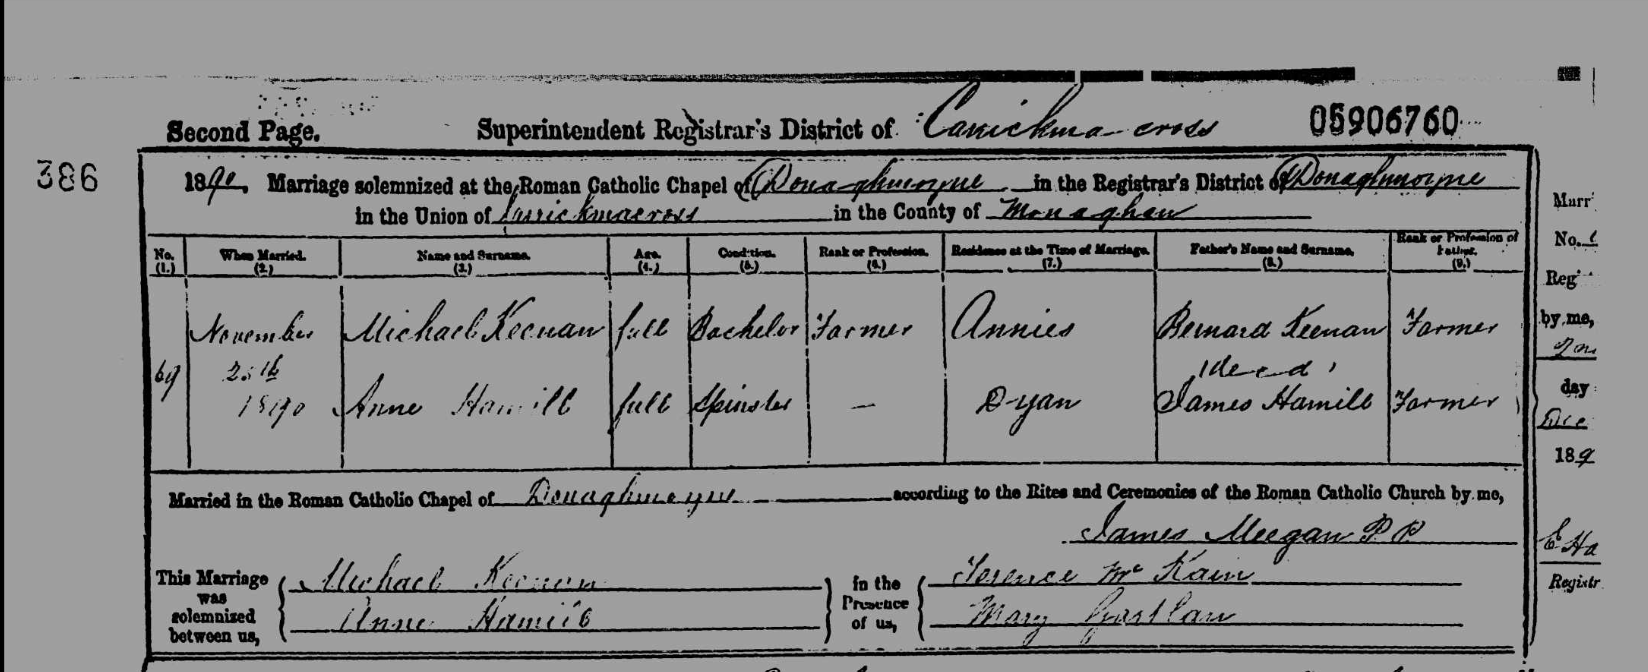 Second Page. Superintendent Registrar's District of Carrickmacross 05906760
386
1890. Marriage solemnized at the Roman Catholic Chapel of Donaghmoyne in the Registrar's District of Donaghmoyne
in the Union of Carrickmacross in the County of Monaghan
No. (1.) When Married. (2.) Name and Surname. (3.) Age. (4.) Condition. (5.) Rank or Profession. (6.) Residence at the Time of Marriage. (7.) Father's Name and Surname. (8.) Rank or Profession of Father. (9.)
November Michael Keenan full Bachelor Farmer Annies Bernard Keenan Farmer
69 25th (decd)
1890 Anne Hamill full Spinster — Dyan James Hamill Farmer
Married in the Roman Catholic Chapel of Donaghmoyne according to the Rites and Ceremonies of the Roman Catholic Church by me,
James Meegan P P
This Marriage was solemnized between us, Michael Keenan
Anne Hamill
in the Presence of us, Terence Mc Kain
Mary
Marr
No.
Reg
by me,
day
Dec
189
E Ha
Registr